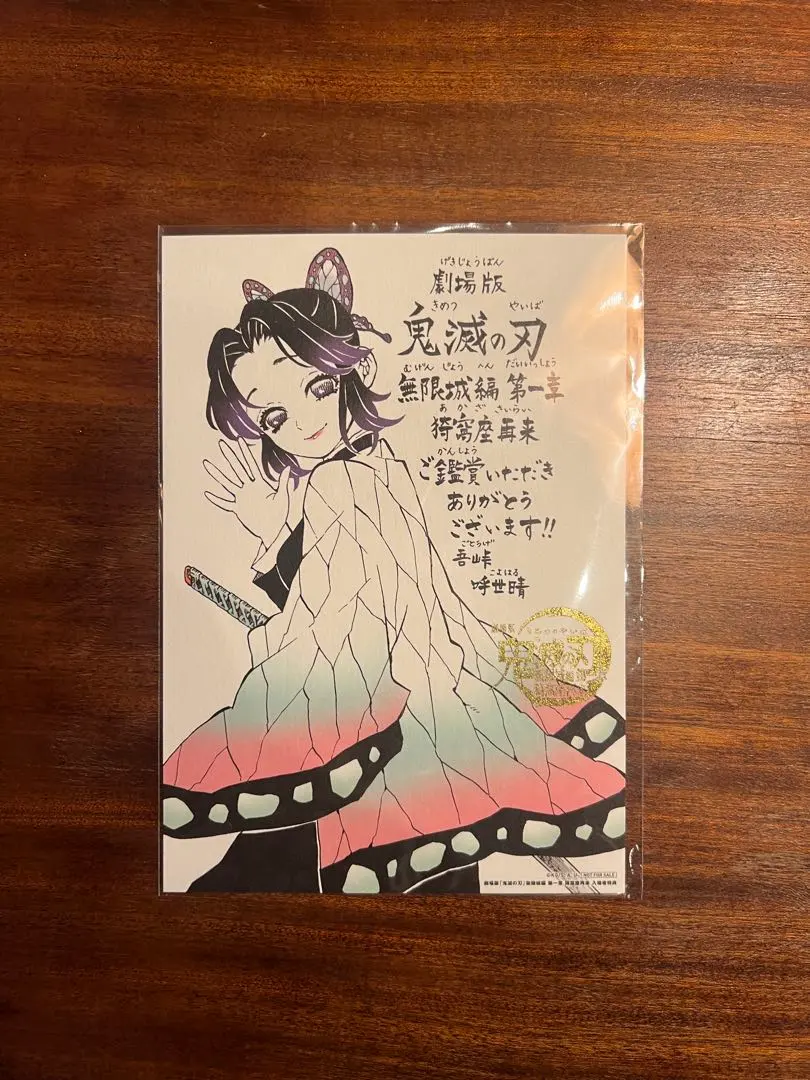 げきじょうばん
劇場版
きめつ やいば
鬼滅の刃
むげんじょうへん だいいっしょう
無限城編 第一章
あかざさいらい
猗窩座再来
かんしょう
ご鑑賞いただき
ありがとう
ございます!!
ごとうげ
吾峠
こよはる
呼世晴
鬼滅の刃
NOT FOR SALE
劇場版「鬼滅の刃」無限城編 第一章 猗窩座再来 入場者特典